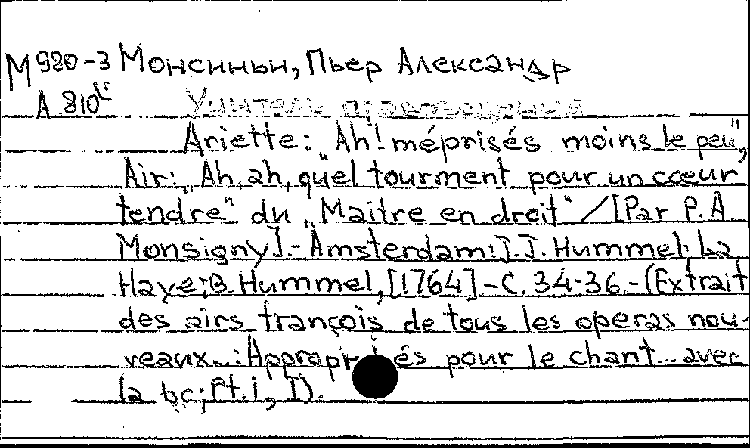 М 980-3 Монсиньи, Пьер Александр
А 810 Учитель правоведения
Ariette: „Ah! méprisés moins le peu",
Air: „Ah, ah, quel tourment pour un cœur
tendre" du „Maitre en droit" / [Par P. A.
Monsigny]. - Amsterdam: J. J. Hummel; La
Haye; B. Hummel, [1764] - C. 34-36. - (Extrait
des airs françois de tous les operas nou-
veaux...: Appropriés pour le chant... avec
la bc; Pt. I, I).